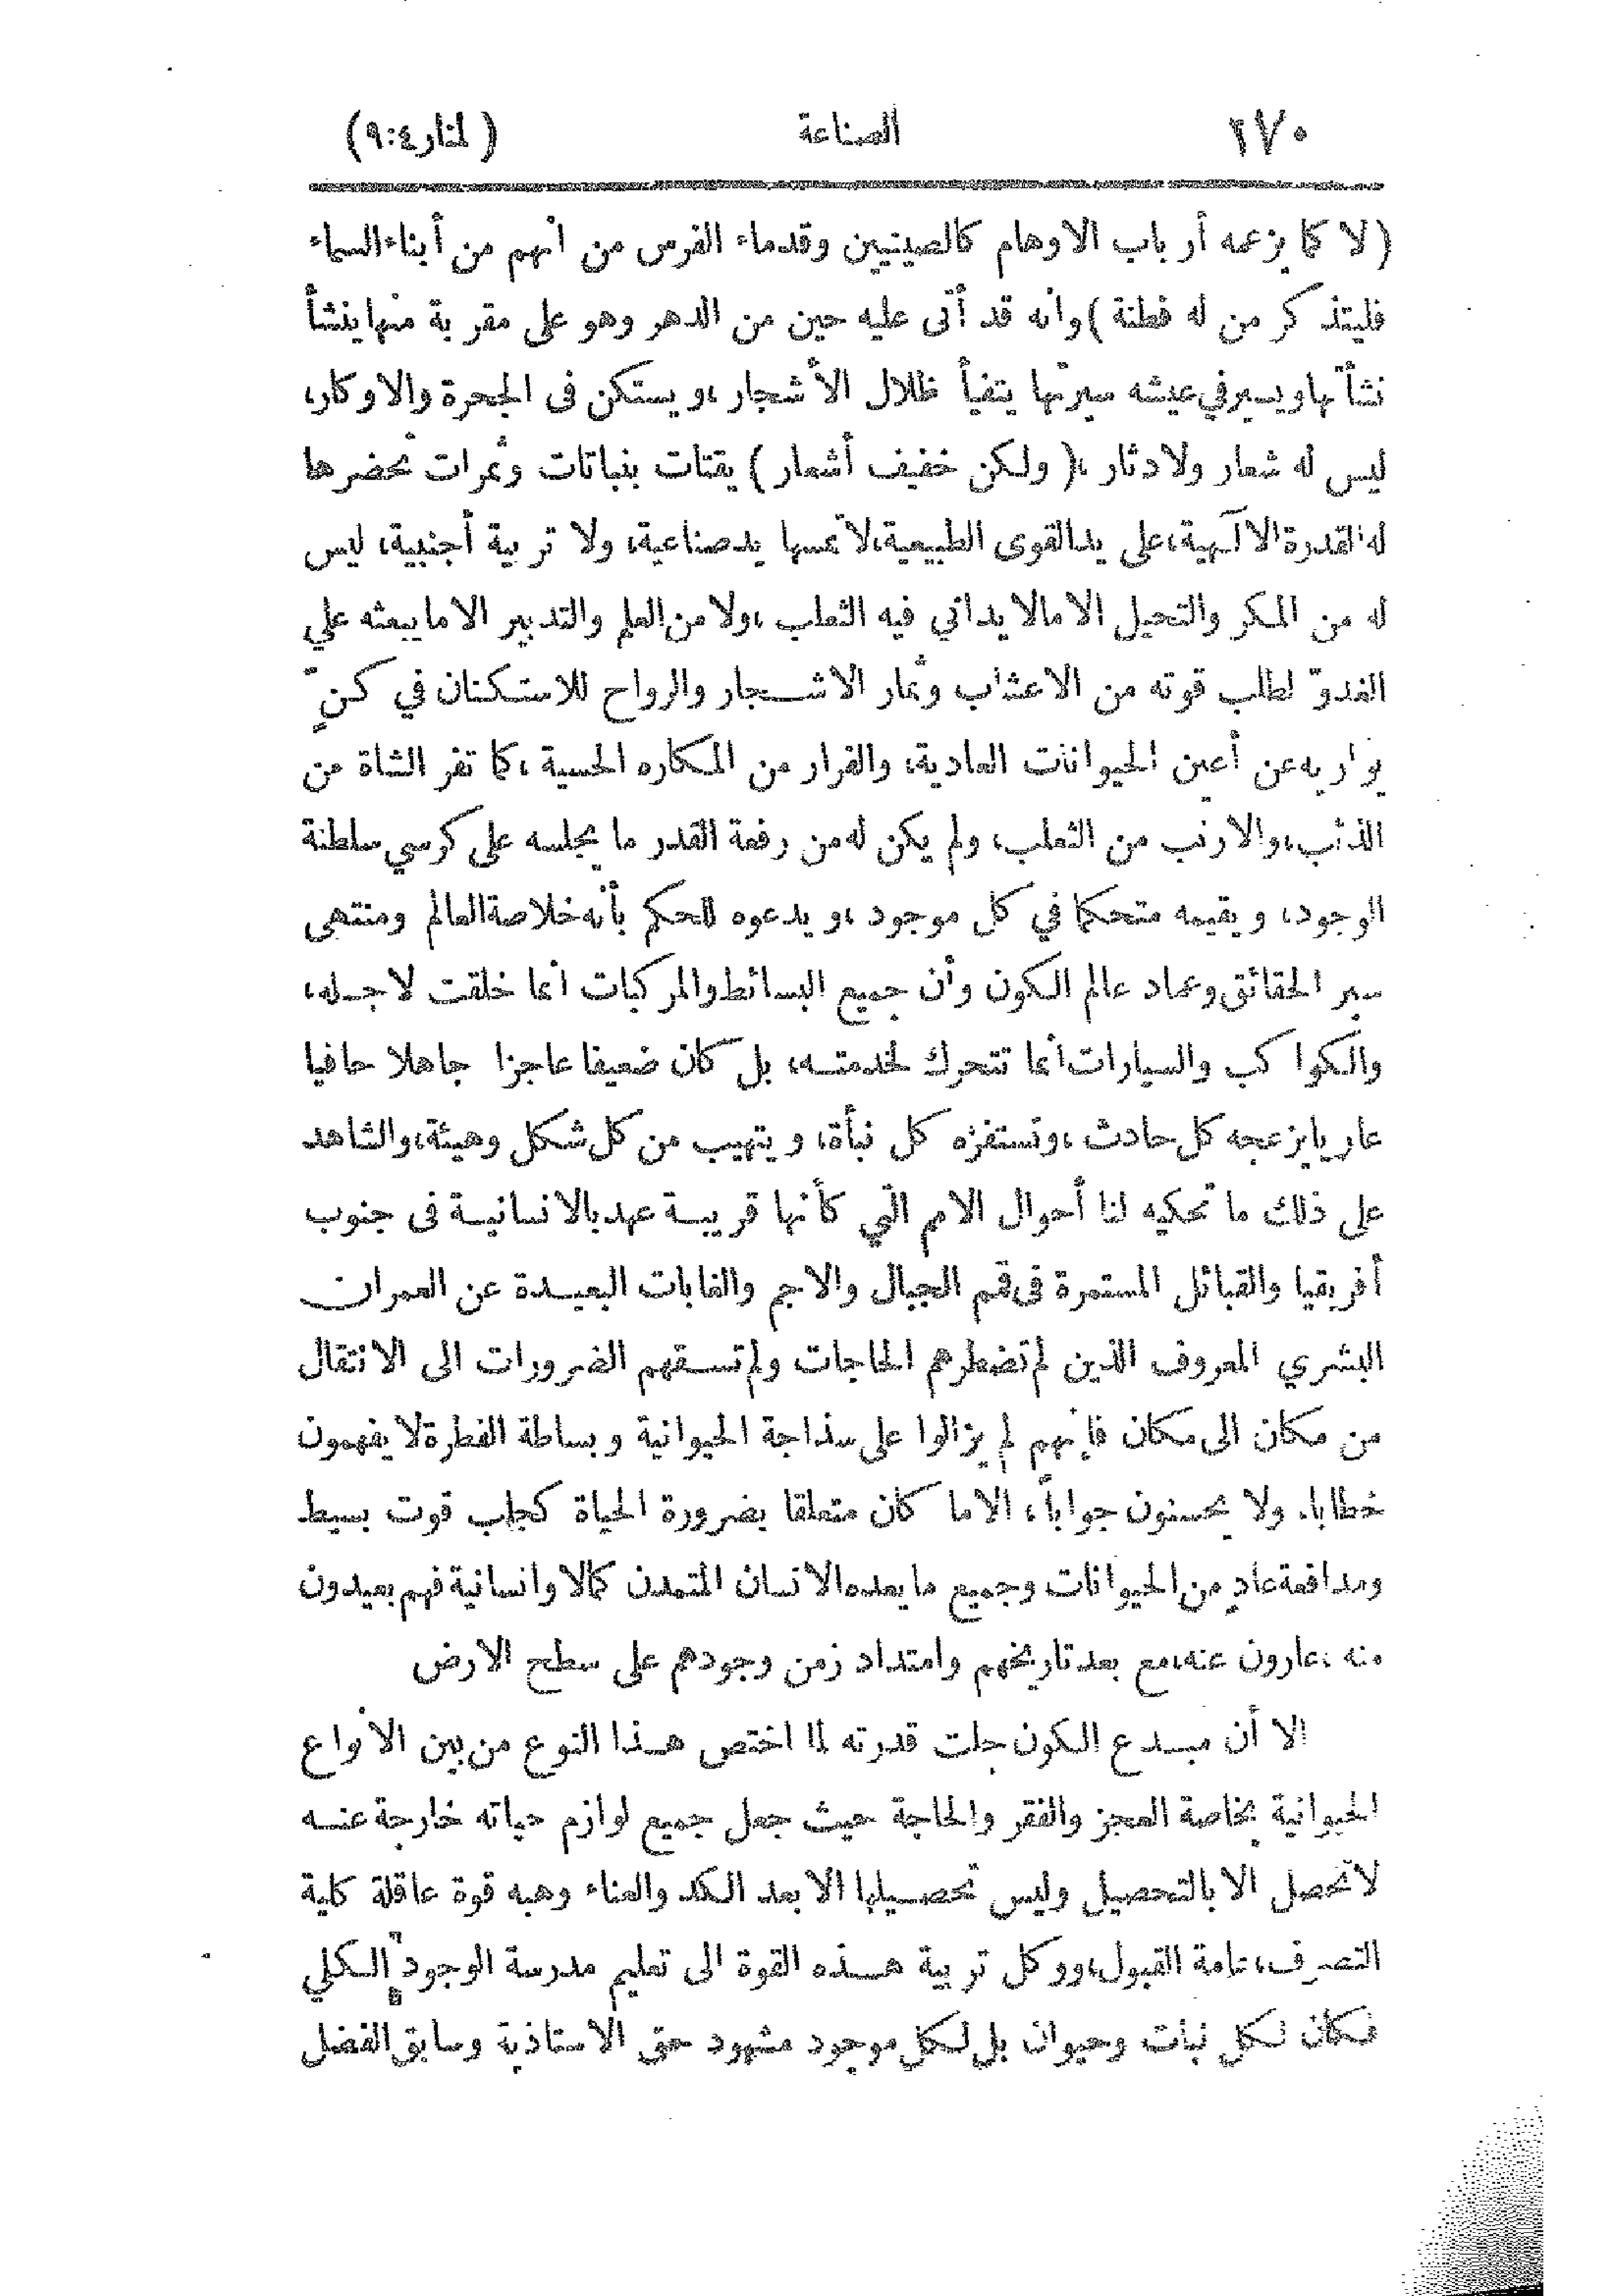 ٢٧٠ الصناعة (المنار ٤:٩)
(لا كما يزعمه أرباب الاوهام كالصينيين وقدماء الفرس من انهم من أبناء السماء
فليتذكر من له فطنة) وانه قد أتى عليه حين من الدهر وهو على مقربة منها ينشأ
نشأتها ويسير في عيشه سيرتها يتفيأ ظلال الأشجار، ويستكن فى الجحرة والاوكار،
ليس له شعار ولا دثار، (ولكن خفيف أشعار) يقتات بنباتات وثمرات تحضرها
له القدرة الآلهية، على يد القوى الطبيعية، لا تمسها يد صناعية، ولا تربية أجنبية، ليس
له من المكر والتحيل الا مالا يداني فيه الثعلب، ولا من العلم والتدبير الا ما يبعثه علي
الغدوّ لطلب قوته من الاعشاب وثمار الاشجار والرواح للاستكنان في كنٍّ
يواريه عن أعين الحيوانات العادية، والفرار من المكاره الحسية، كما تفر الشاة من
الذئب، والارنب من الثعلب، ولم يكن له من رفعة القدر ما يجلسه على كرسي سلطنة
الوجود، ويقيمه متحكما في كل موجود، ويدعوه للحكم بأنه خلاصة العالم ومنتهى
سير الحقائق وعماد عالم الكون وأن جميع البسائط والمركبات انما خلقت لاجله،
والكواكب والسيارات انما تتحرك لخدمته، بل كان ضعيفا عاجزا جاهلا حافيا
عاريا يزعجه كل حادث، وتستفزه كل نبأة، ويتهيب من كل شكل وهيئة، والشاهد
على ذلك ما تحكيه لنا أحوال الامم التي كأنها قريبة عهد بالانسانية فى جنوب
أفريقيا والقبائل المستمرة فى قمم الجبال والاجم والغابات البعيدة عن العمران
البشري المعروف الذين لم تضطرهم الحاجات ولم تسقهم الضرورات الى الانتقال
من مكان الى مكان فانهم لم يزالوا على سذاجة الحيوانية وبساطة الفطرة لا يفهمون
خطابا. ولا يحسنون جوابا، الا ما كان متعلقا بضرورة الحياة كجلب قوت بسيط
ومدافعة عادٍ من الحيوانات وجميع ما يعده الانسان المتمدن كمالا وانسانية فهم بعيدون
منه، عارون عنه، مع بعد تاريخهم وامتداد زمن وجودهم على سطح الارض
الا أن مبدع الكون جلت قدرته لما اختص هذا النوع من بين الانواع
الحيوانية بخاصة العجز والفقر والحاجة حيث جعل جميع لوازم حياته خارجة عنه
لا تحصل الا بالتحصيل وليس تحصيلها الا بعد الكد والعناء وهبه قوة عاقلة كلية
التصرف، تامة القبول، ووكل تربية هذه القوة الى تعليم مدرسة الوجود الكلي
فكان لكل نبات وحيوان بل لكل موجود مشهود حق الاستاذية وسابق الفضل